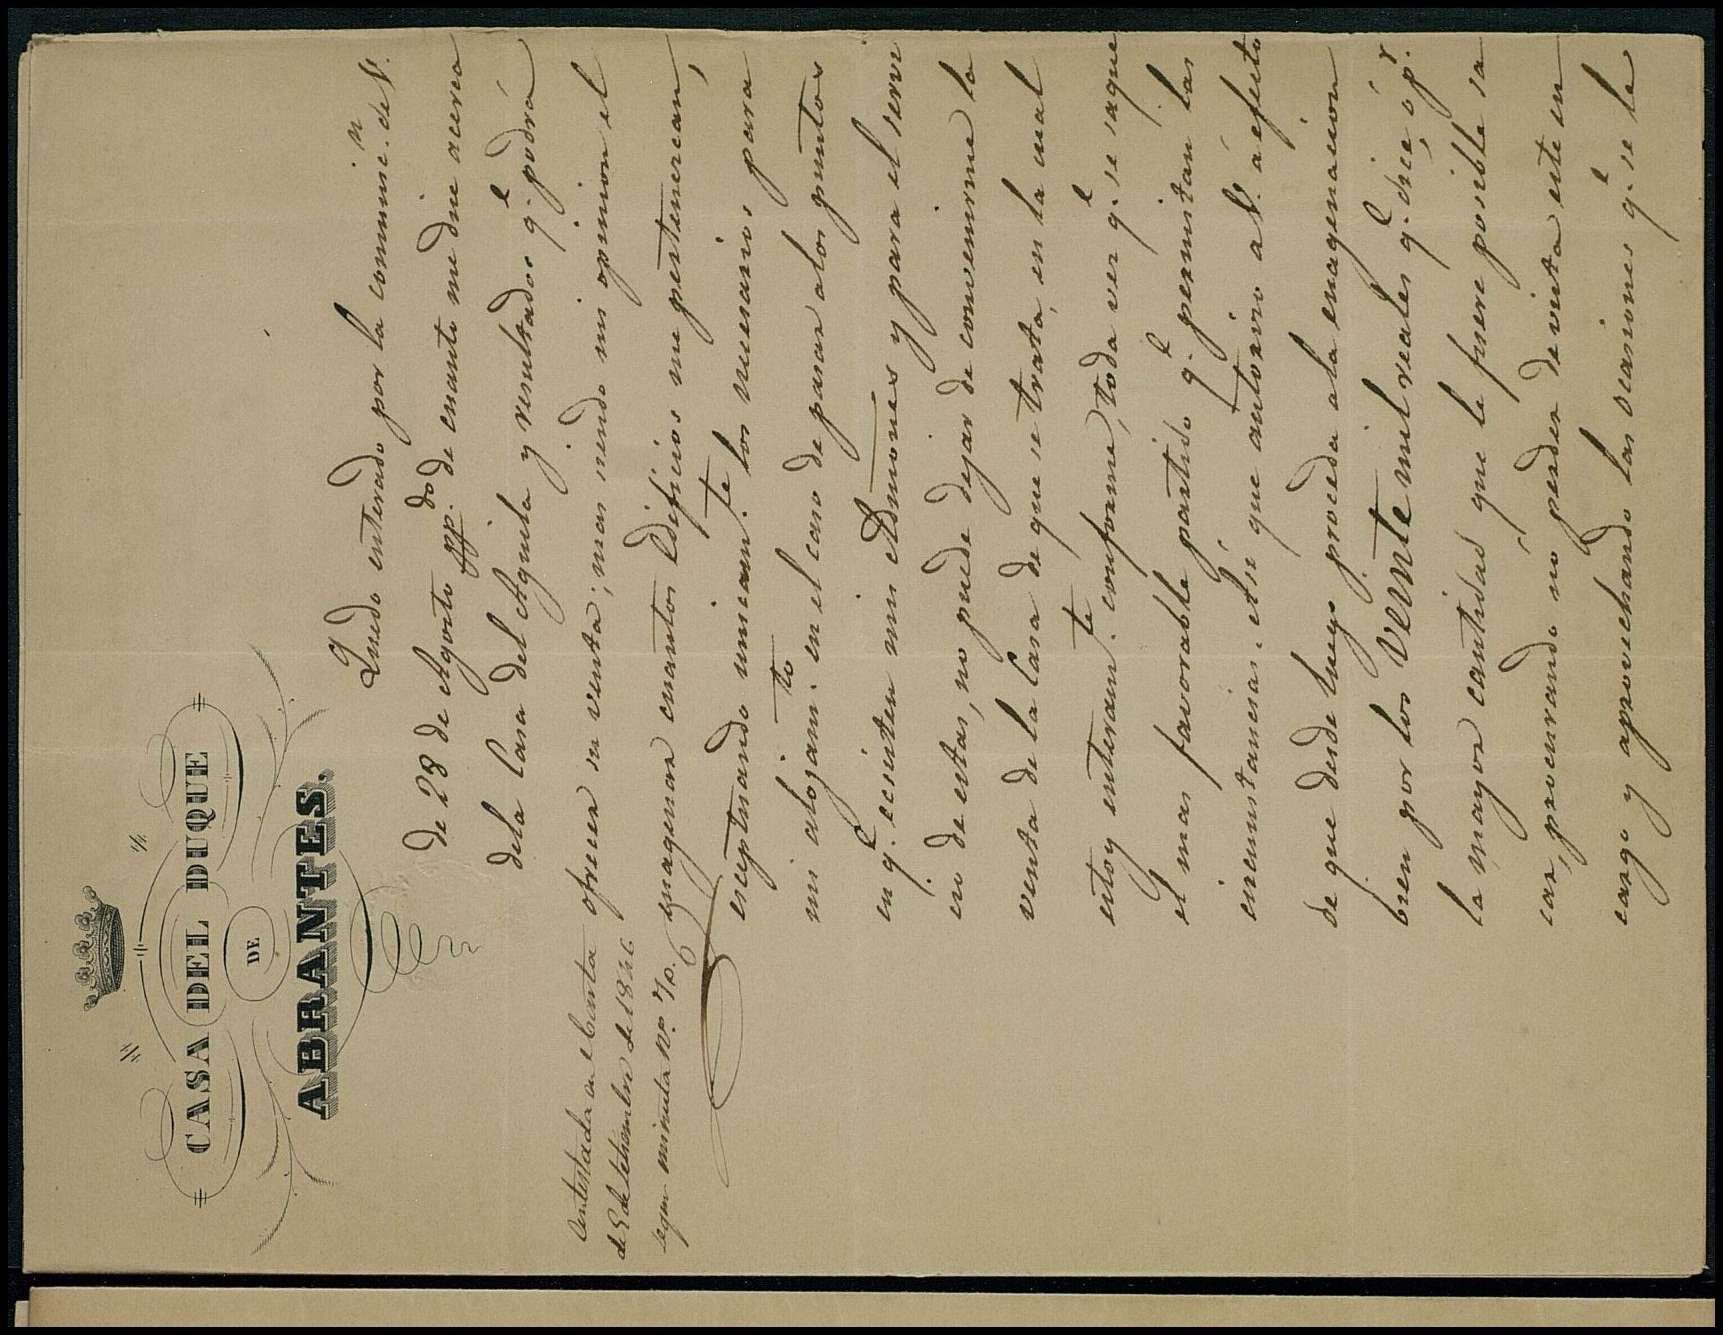 CASA DEL DUQUE
DE
ABRANTES.
Quedo enterado por la comunic.n de V.
de 28 de Agosto pp.do de cuanto me dice acerca
dela Casa del Aguila y resultados q.e podrá
ofrecer su venta; mas siendo mi opinion el
enagenar cuantos Edificios me pertenezcan,
esceptuando unicam.te los necesarios para
mi alojam.to en el caso de pasar a los puntos
en q.e ecsisten mis Admones y para el servi
cio de estas, no puede dejar de convenirme la
venta de la Casa de que se trata, en la cual
estoy enteram.te conforme, toda vez q.e se saque
el mas favorable partido q.e permitan las
circunstancias. Asi que autorizo a V. a efecto
de que desde luego proceda a la enagenacion
bien por los veinte mil reales q.e dice, o p.r
la mayor cantidad que le fuere posible sa
car, procurando no perder de vista este en
cargo y aprovechando las ocasiones q.e se le
Contestada en Carta
de 5 de Setiembre de 1846
segun minuta Nº. 70.